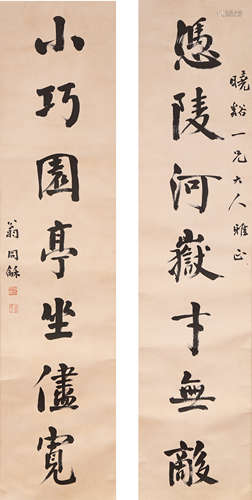 曉谿一兄大人雅正
憑陵河嶽才無敵
小巧園亭坐儘寬
翁同龢